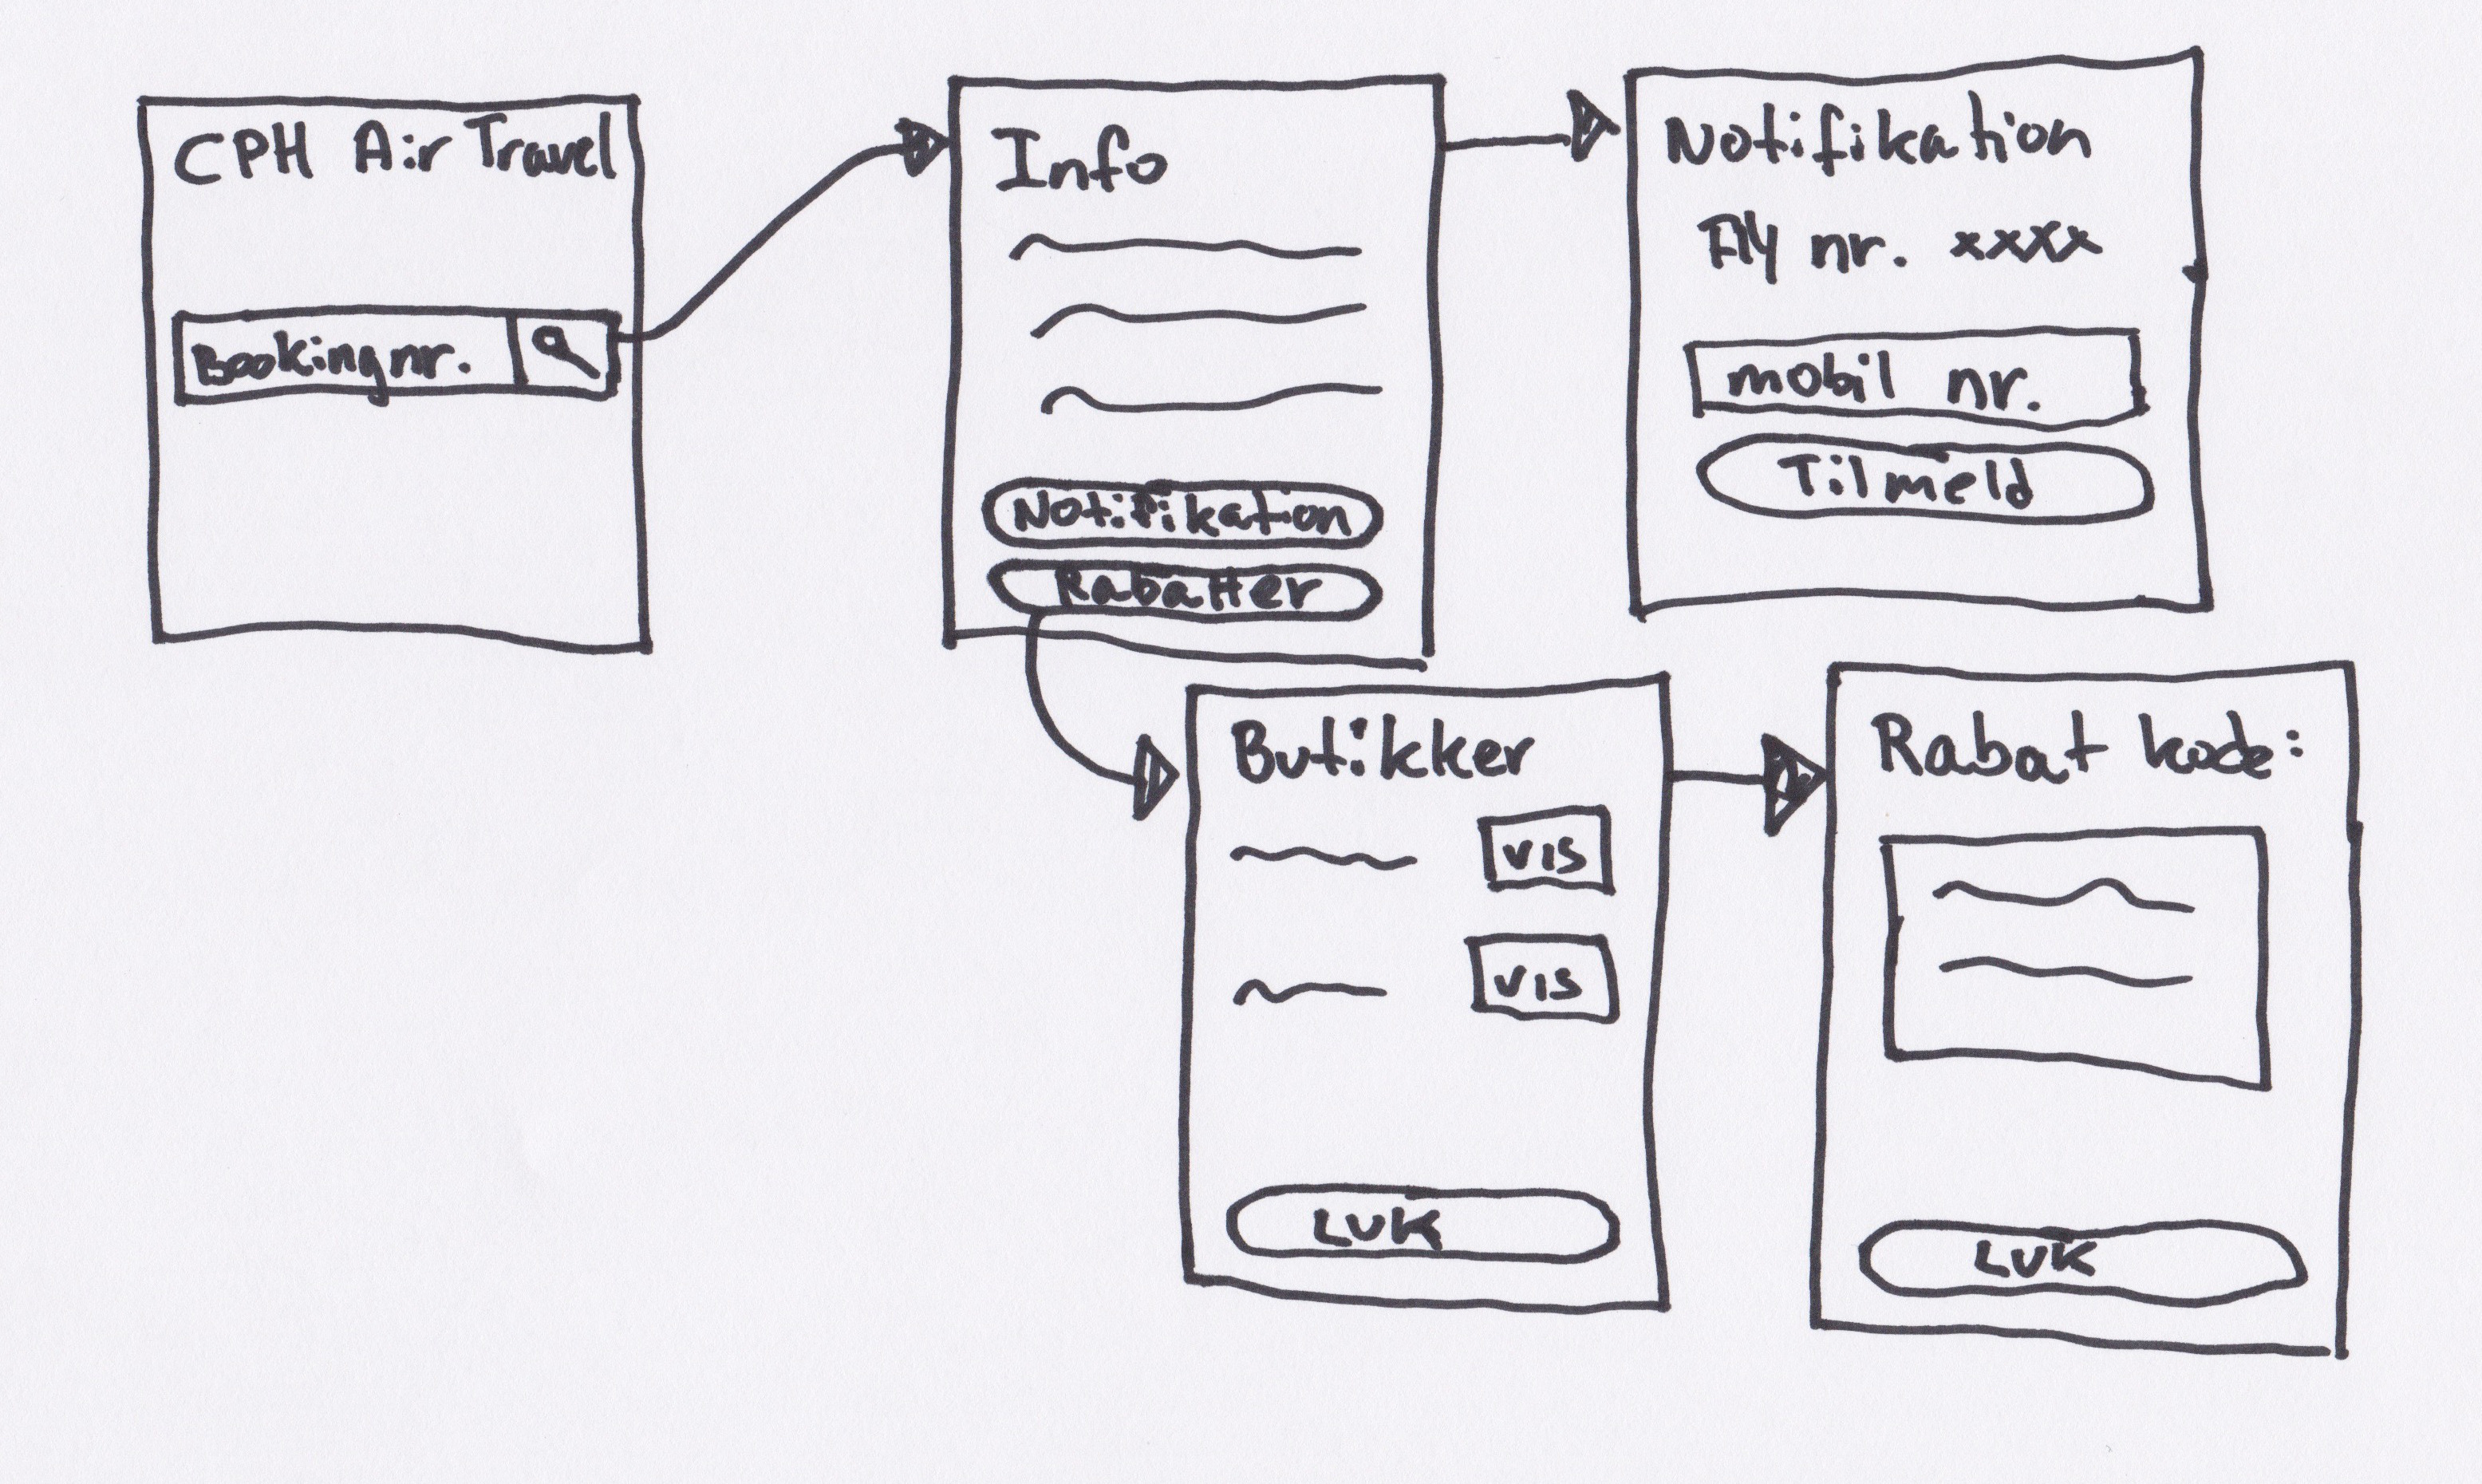 CPH Air Travel
Bookingnr.
Info
Notifikation
Rabatter
Notifikation
Fly nr. xxxx
mobil nr.
Tilmeld
Butikker
vis
vis
Luk
Rabat kode:
Luk